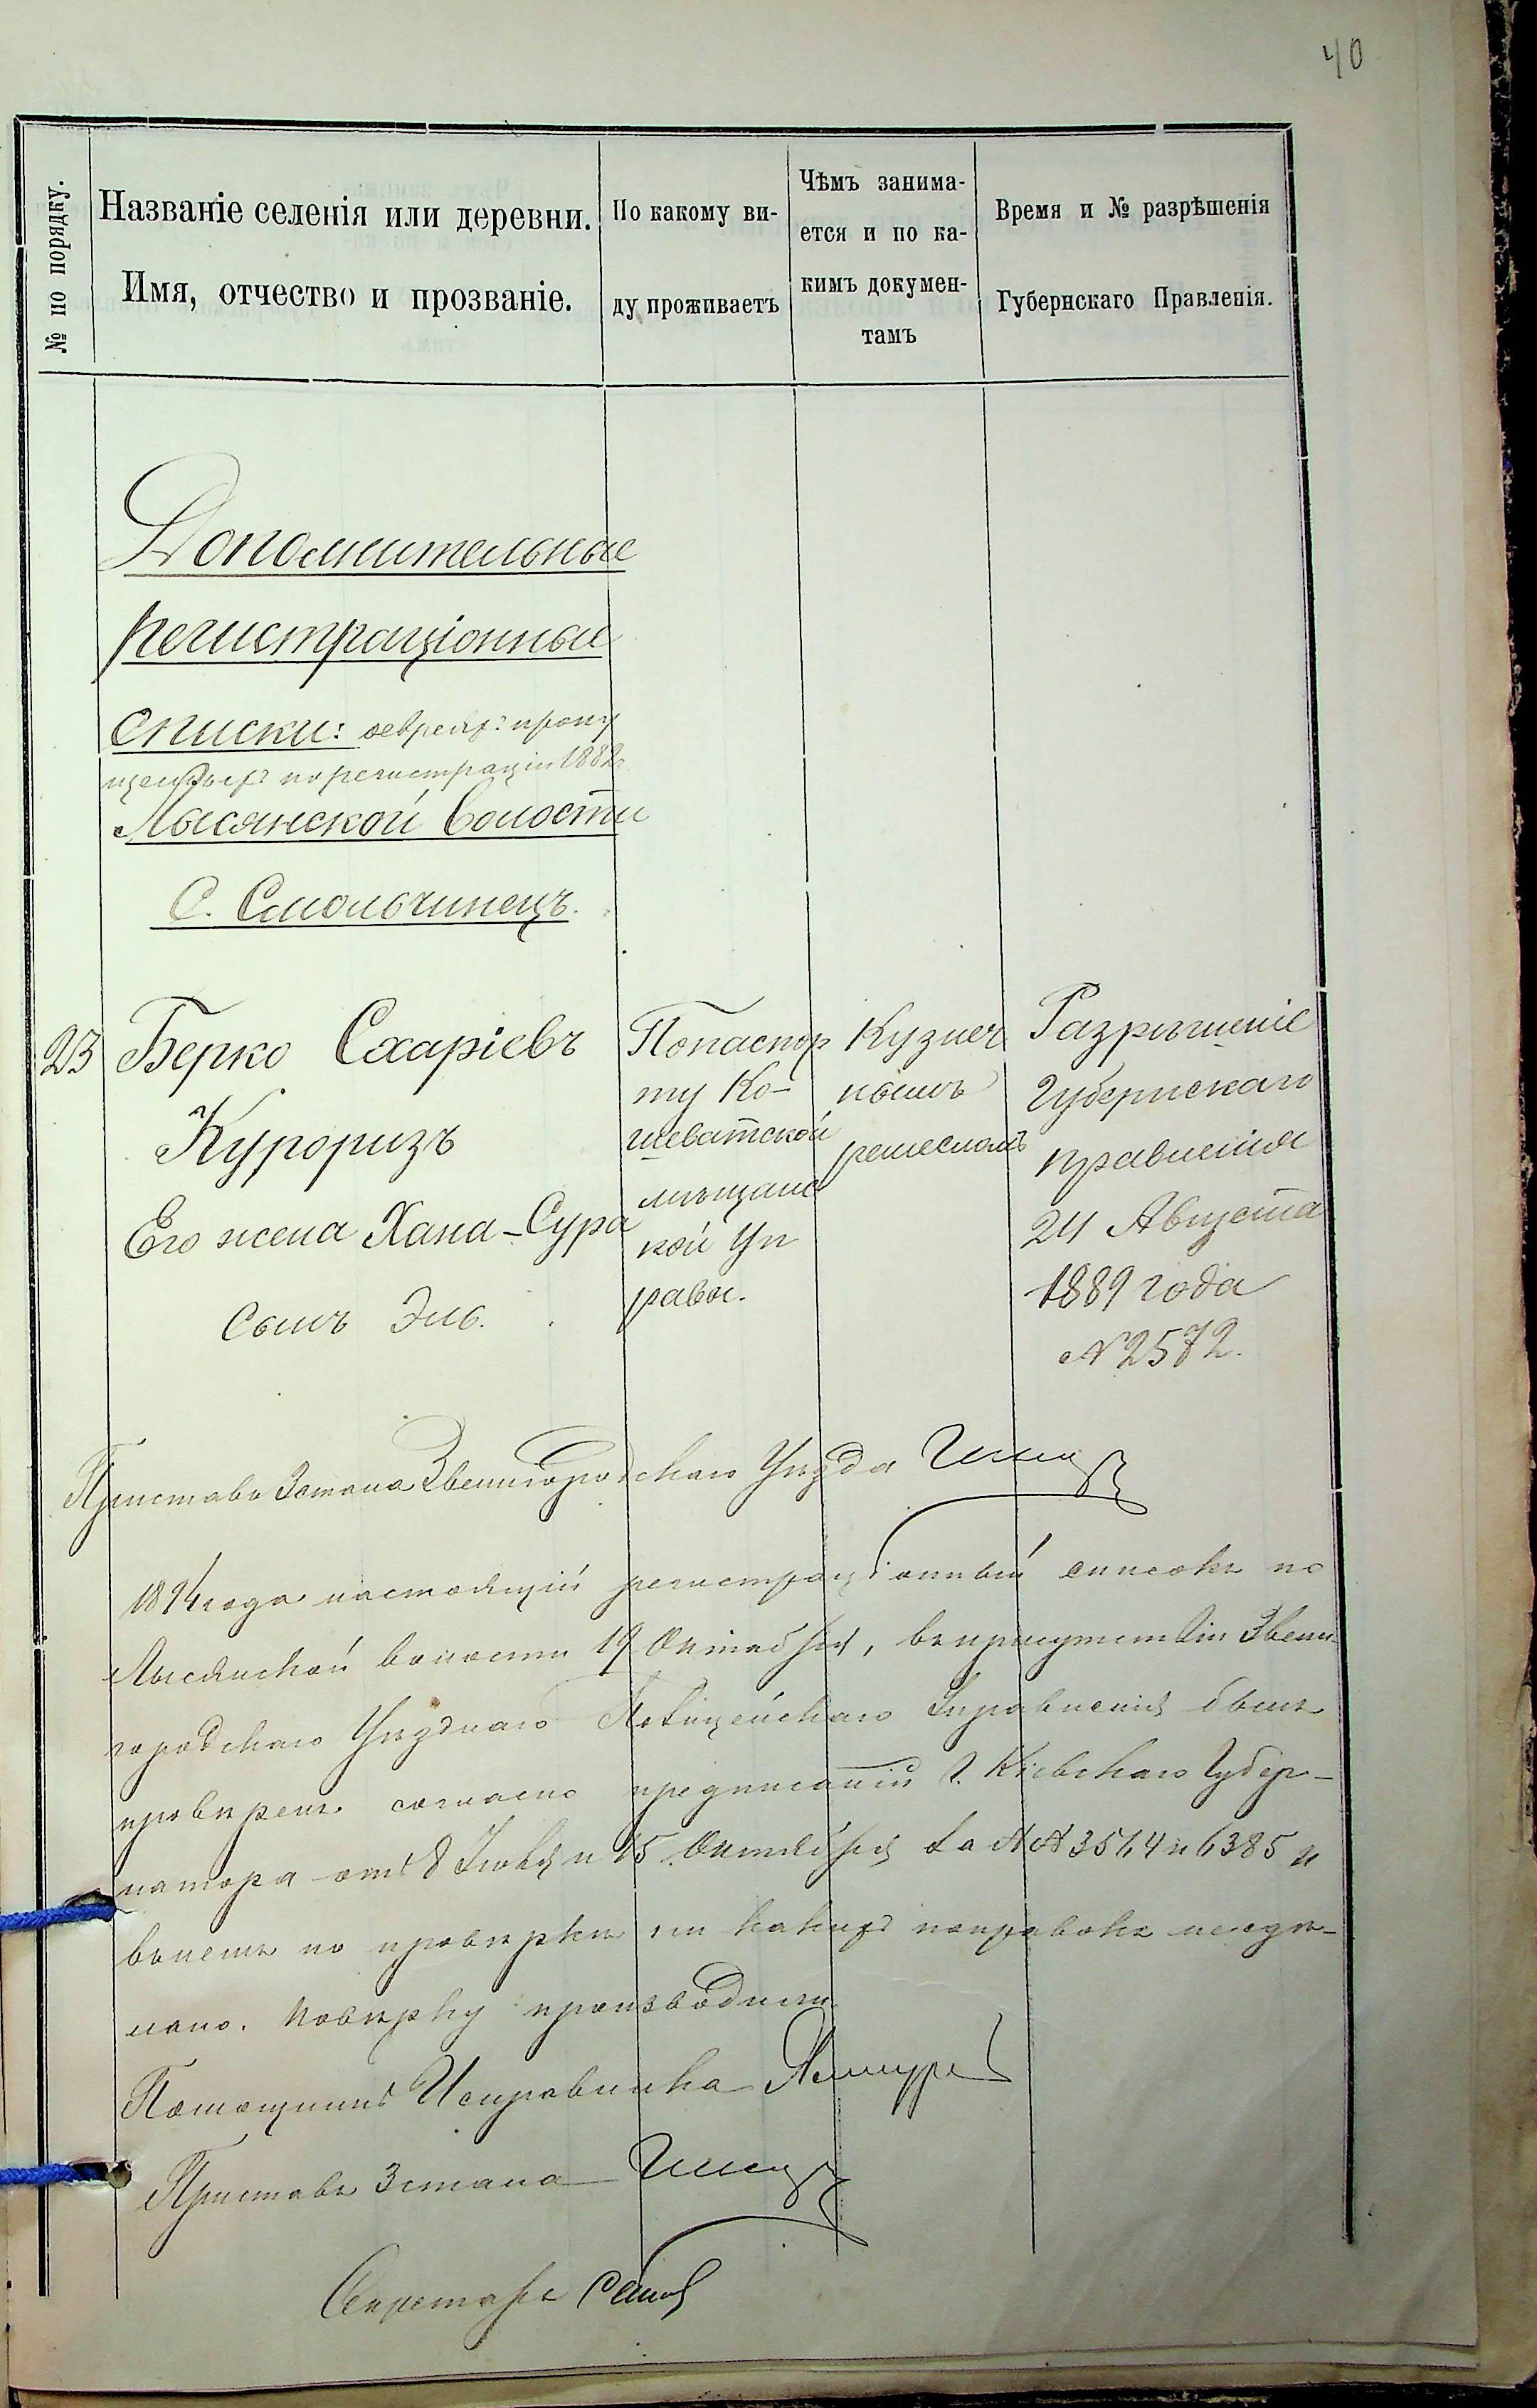 40
№ по порядку.
Названіе селенія или деревни.
Имя, отчество и прозваніе.
По какому ви-
ду проживаетъ
Чѣмъ занима-
ется и по ка-
кимъ докумен-
тамъ
Время и № разрѣшенія
Губернскаго Правленія.
Дополнительные
регистраціонные
списки: евреяхъ пропу
щенныхъ по регистраціи 1882г.
Лысянской волости
С. Смольчинецъ.
23
Берко Схаріевъ
Куроризъ
Его жена Хана-Сура
Сынъ Эль.
По паспор
ту Ко-
шеватской
мѣщанс
кой Уп
равы.
Кузнеч
нымъ
ремесломъ
Разрѣшеніе
Губернскаго
правленія
24 Августа
1889 года
№ 2572.
Приставъ 3 стана Звенигородскаго Уѣзда
1894 года настоящій регистраціонный списокъ по
Лысянской волости 19 Октября, въ присутствіи Звени-
городскаго Уѣзднаго Полицейскаго Управленія былъ
провѣренъ согласно предписаній Г. Кіевскаго Губер-
натора отъ 8 Іюля и 15 Октября за №№ 3514 и 6385 и
въ немъ по провѣркѣ ни какихъ поправокъ не сдѣ-
лано. Повѣрку производили
Помощникъ Исправника
Приставъ 3 стана
Секретарь